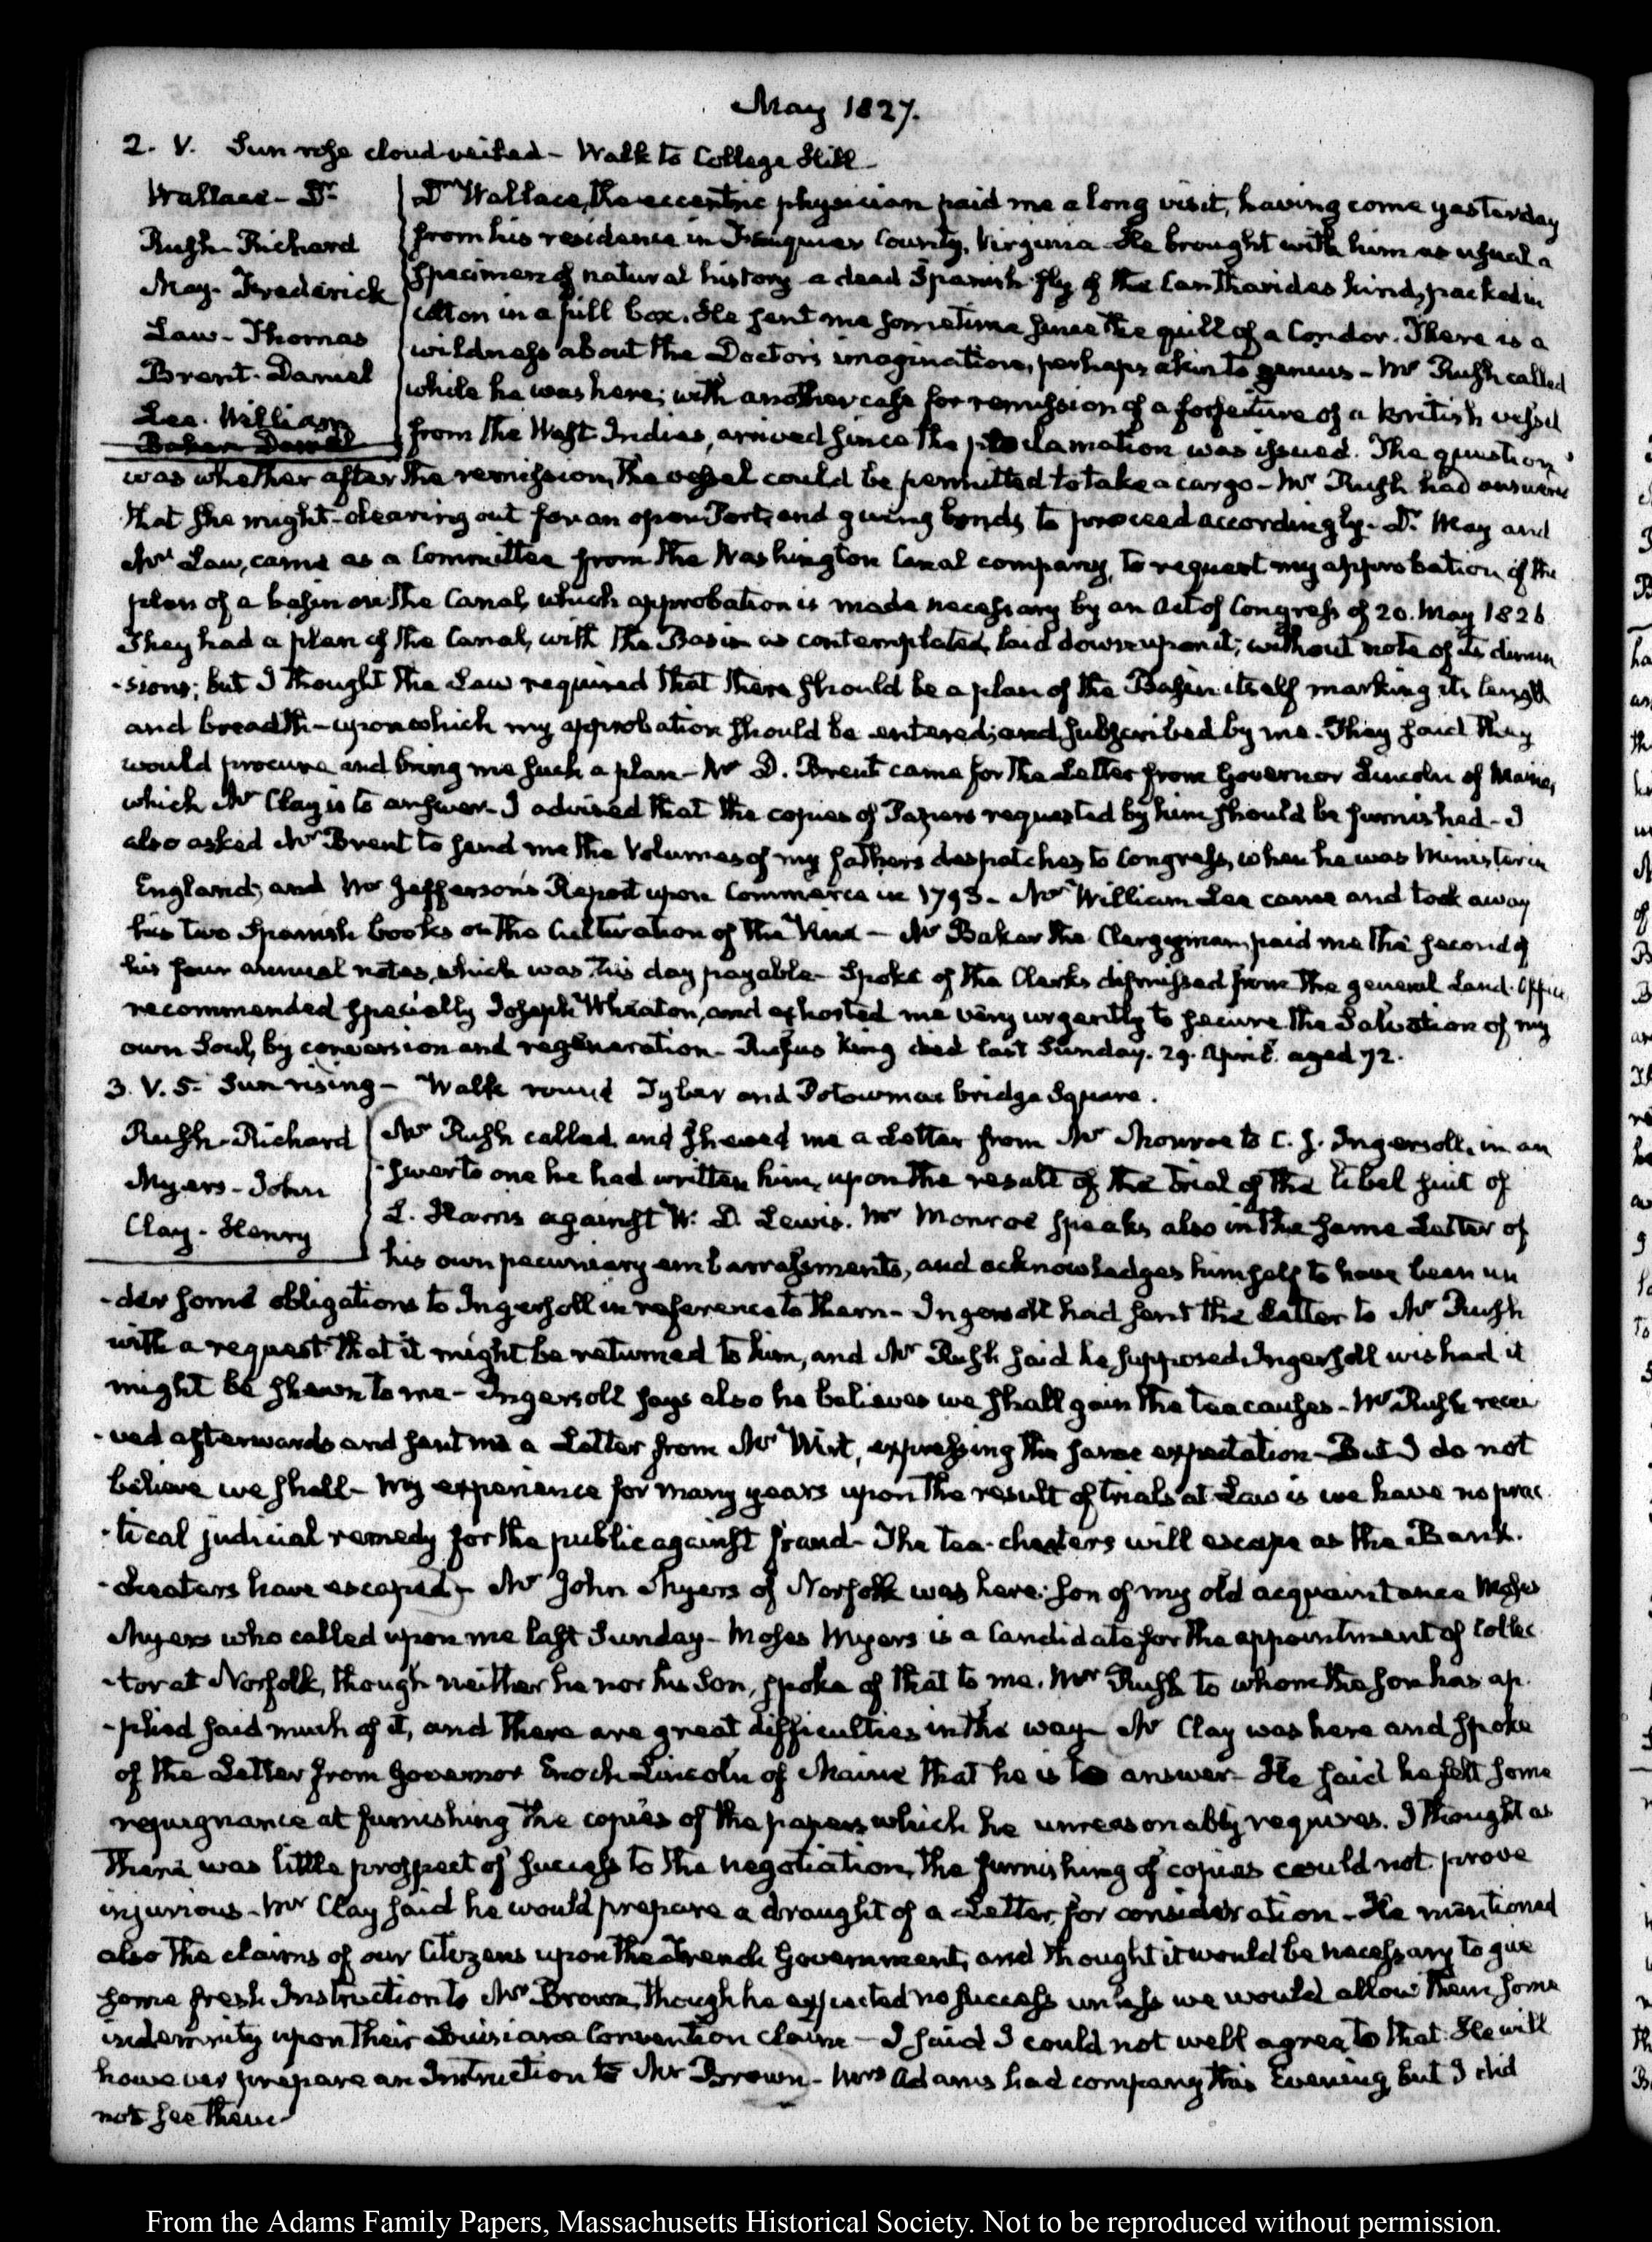 May 1827.
2. V. Sun rose cloud veiled – Walk to College Hill –
Wallace – Dr
Rush – Richard
May – Frederick
Law – Thomas
Brent – Daniel
Lee – William
Baker Daniel
Dr Wallace, the eccentric physician paid me a long visit, having come yesterday
from his residence in Fauquier County, Virginia – He brought with him as usual a
specimen of natural history – a dead Spanish fly of the Cantharides kind, packed in
cotton in a pill box. He sent me sometime since the quill of a Condor. There is a
wildness about the Doctor's imagination, perhaps akin to genius – Mr Rush called
while he was here; with another case for remission of a forfeiture of a British vessel
from the West-Indies, arrived since the proclamation was issued. The question
was whether after the remission, the vessel could be permitted to take a cargo – Mr Rush had answered
that she might – clearing out for an open Port, and giving bonds to proceed accordingly – Dr May and
Mr Law, came as a Committee from the Washington Canal company, to request my approbation of the
plan of a basin on the Canal, which approbation is made necessary by an Act of Congress of 20. May 1826
They had a plan of the Canal, with the Basin as contemplated, laid down upon it; without note of its dimen
-sions; but I thought the Law required that there should be a plan of the Basin itself marking its length
and breadth – upon which my approbation should be entered; and subscribed by me – They said they
would procure and bring me such a plan – Mr D. Brent came for the Letter from Governor Lincoln of Maine,
which Mr Clay is to answer – I advised that the copies of Papers requested by him should be furnished – I
also asked Mr Brent to send me the Volumes of my fathers despatches to Congress, when he was Minister in
England; and Mr Jefferson's Report upon Commerce in 1793 – Mr William Lee came and took away
his two Spanish books on the Cultivation of the Vine – Mr Baker the Clergyman, paid me the second of
his four annual notes, which was this day payable – Spoke of the Clerks dismissed from the general Land-Office
recommended specially Joseph Wheaton, and exhorted me very urgently to secure the Salvation of my
own Soul, by conversion and regeneration – Rufus King died last Sunday. 29. April. aged 72.
3. V. 5. Sun rising – Walk round Tyber and Potowmac bridge Square.
Rush – Richard
Myers – John
Clay – Henry
Mr Rush called, and shewed me a Letter from Mr Monroe to C. J. Ingersoll, in an
-swer to one he had written him, upon the result of the trial of the libel suit of
L. Harris against W. D. Lewis. Mr Monroe speaks also in the same Letter of
his own pecuniary embarrassments, and acknowledges himself to have been un
-der some obligations to Ingersoll in reference to them – Ingersoll had sent the Letter to Mr Rush
with a request that it might be returned to him, and Mr Rush said he supposed Ingersoll wished it
might be shewn to me – Ingersoll says also he believes we shall gain the tea causes – Mr Rush recei
-ved afterwards and sent me a Letter from Mr Wirt, expressing the same expectation – But I do not
believe we shall – My experience for many years upon the result of trials at Law is we have no prac
-tical judicial remedy for the public against fraud – The tea-cheaters will escape as the Bank-
-cheaters have escaped – Mr John Myers of Norfolk was here: son of my old acquaintance Moses
Myers who called upon me last Sunday – Moses Myers is a Candidate for the appointment of Collec
-tor at Norfolk, though neither he nor his Son, spoke of that to me. Mr Rush to whom the son has ap
-plied said much of it, and there are great difficulties in the way – Mr Clay was here and spoke
of the Letter from Governor Enoch Lincoln of Maine that he is to answer – He said he felt some
repugnance at furnishing the copies of the papers which he unreasonably requires. I thought as
there was little prospect of success to the negotiation, the furnishing of copies could not prove
injurious – Mr Clay said he would prepare a draught of a Letter, for consideration – He mentioned
also the claims of our Citizens upon the French Government, and thought it would be necessary to give
some fresh Instruction to Mr Brown, though he expected no success unless we would allow them some
indemnity upon their Louisiana Convention claim – I said I could not well agree to that. He will
however prepare an Instruction to Mr Brown – Mrs Adams had company this Evening, but I did
not see them –
From the Adams Family Papers, Massachusetts Historical Society. Not to be reproduced without permission.